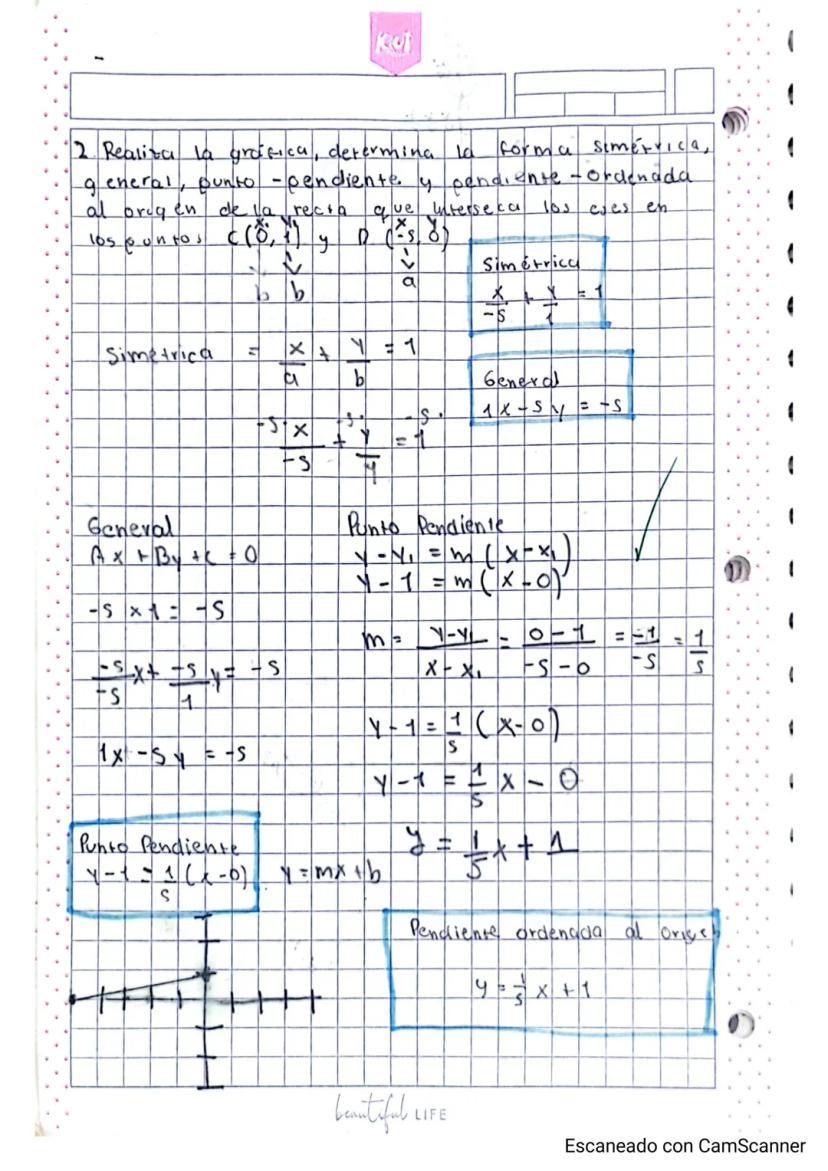 KIUT
2. Realiza la gráfica, determina la forma simétrica,
general, punto-pendiente y pendiente-ordenada
al origen de la recta que interseca los ejes en
x y x y
los puntos C(0, 1) y D (-5, 0)
b b a
Simétrica
x/-5 + y/1 = 1
Simetrica = x/a + y/b = 1
General
1x-5y = -5
-5· x/-5 + -5· y/1 = -5· 1
General
Ax+By+c=0
-5 x 1 = -5
-5/-5 x + -5/1 y = -5
1x -5y = -5
Punto Pendiente
y-y₁ = m(x-x₁)
y-1 = m(x-0)
m = y-y₁/x-x₁ = 0-1/-5-0 = -1/-5 = 1/5
y-1 = 1/5 (x-0)
y-1 = 1/5 x - 0
y = 1/5 x + 1
Punto Pendiente
y-1 = 1/5 (x-0)
y=mx+b
Pendiente ordenada al origen
y = 1/5 x + 1
beautiful LIFE
Escaneado con CamScanner